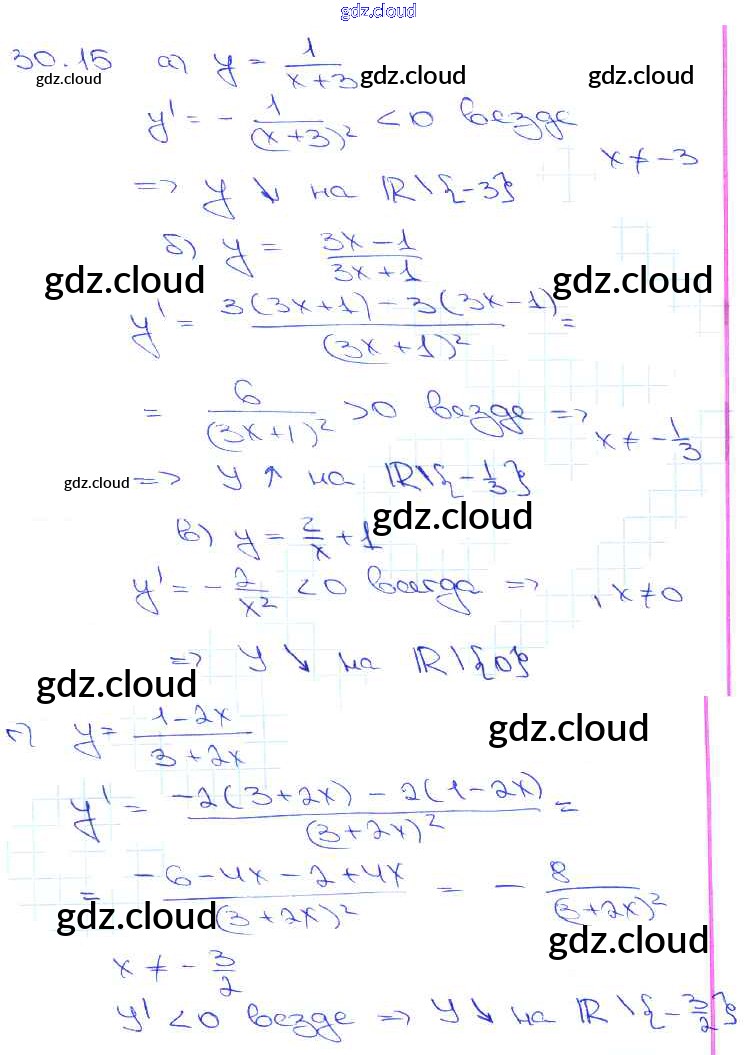 gdz.cloud
30.15 а) y = 1/(x+3)
gdz.cloud gdz.cloud
y' = - 1/(x+3)² < 0 везде
x ≠ -3
=> y ↓ на ℝ\{-3}
б) y = (3x-1)/(3x+1)
gdz.cloud gdz.cloud
y' = (3(3x+1) - 3(3x-1))/(3x+1)² =
= 6/(3x+1)² > 0 везде =>
x ≠ -1/3
gdz.cloud => y ↑ на ℝ\{-1/3}
gdz.cloud
в) y = 2/x + 1
y' = - 2/x² < 0 всегда => , x ≠ 0
=> y ↓ на ℝ\{0}
gdz.cloud
г) y = (1-2x)/(3+2x)
gdz.cloud
y' = (-2(3+2x) - 2(1-2x))/(3+2x)² =
= (-6-4x-2+4x)/(3+2x)² = - 8/(3+2x)²
gdz.cloud gdz.cloud
x ≠ - 3/2
y' < 0 везде => y ↓ на ℝ\{-3/2}